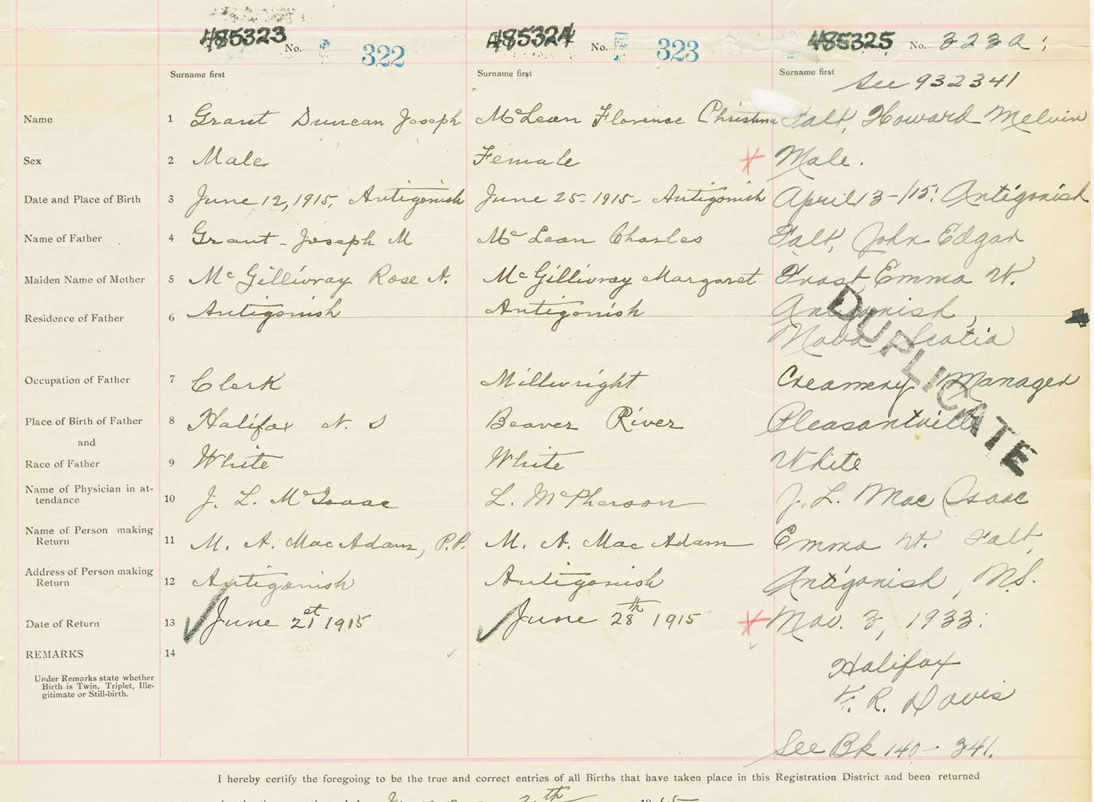 485323 No. 322 485324 No. 323 485325 No. 323a:
Surname first Surname first Surname first
See 932341
Name 1 Grant Duncan Joseph McLean Florence Christina Falt, Howard Melvin
Sex 2 Male Female Male.
Date and Place of Birth 3 June 12, 1915, Antigonish June 25-1915- Antigonish April 13-/15: Antigonish
Name of Father 4 Grant-Joseph M McLean Charles Falt, John Edgar
Maiden Name of Mother 5 McGillivray Rose A. McGillivray Margaret Emma W.
Residence of Father 6 Antigonish Antigonish Antigonish,
Nova Scotia
DUPLICATE
Occupation of Father 7 Clerk Millwright Creamery Manager
Place of Birth of Father 8 Halifax N. S Beaver River Pleasantville
and
Race of Father 9 White White White
Name of Physician in at-
tendance 10 J. L. McIsaac L. McPherson J. L. MacIsaac
Name of Person making
Return 11 M. A. MacAdam, P.P. M. A. MacAdam Emma W. Falt,
Address of Person making
Return 12 Antigonish Antigonish Antigonish, N.S.
Date of Return 13 June 21st 1915 June 28th 1915 3, 1933:
REMARKS 14
Under Remarks state whether
Birth is Twin, Triplet, Ille-
gitimate or Still-birth.
Halifax
R. Davis
See Bk 140- 341.
I hereby certify the foregoing to be the true and correct entries of all Births that have taken place in this Registration District and been returned